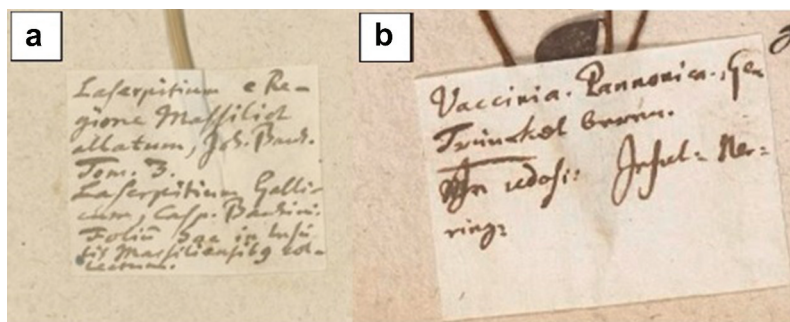 a
Laserpitium e Re-
gione Massiliæ
allatum, Joh. Bauh.
Tom. 3.
Laserpitium Galli-
cum, Casp. Bauhini.
Foliū in Insu-
lis Massiliensibꝫ col-
lectum.
b
Vaccinia. Pannonica., Ger.
Trunckel beeren.
In udosi: Insul: Ner-
ring: